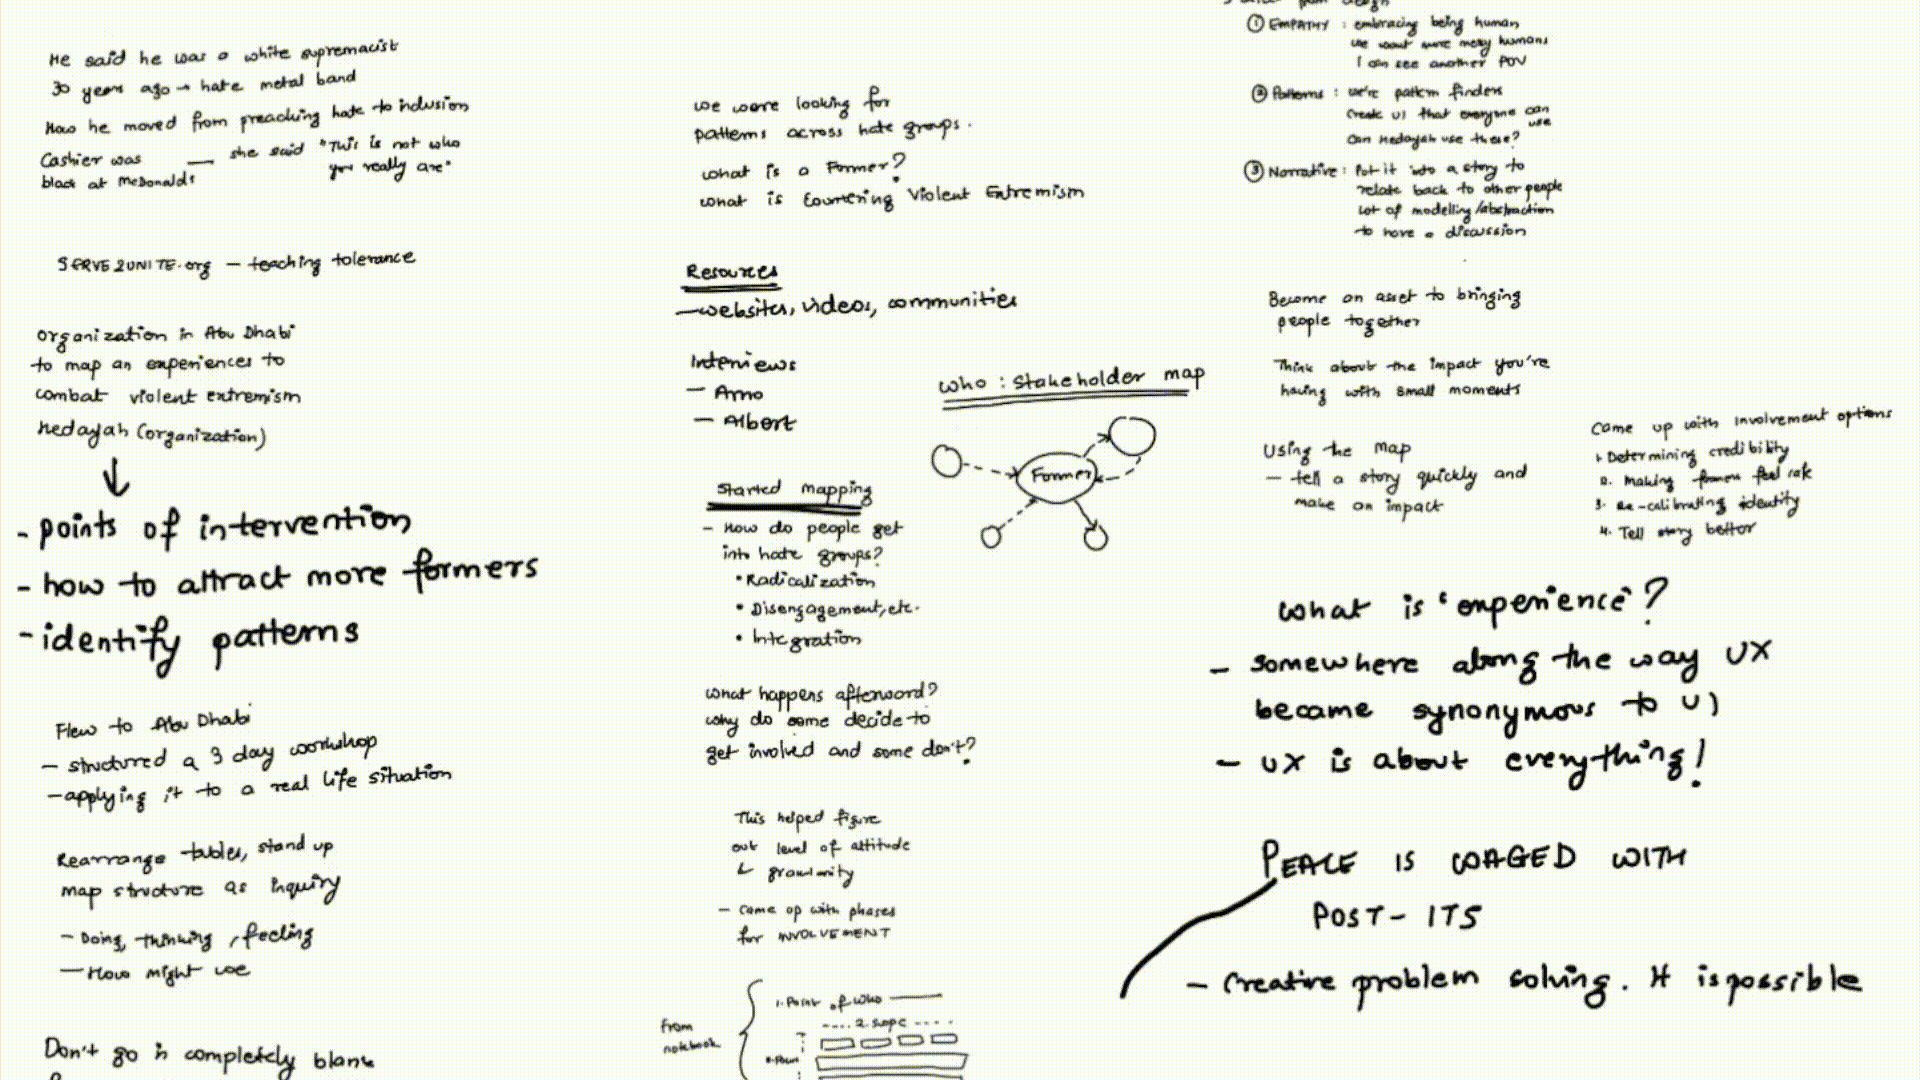 He said he was a white supremacist
30 years ago → hate metal band
How he moved from preaching hate to inclusion
Cashier was — she said "This is not who
black at McDonalds you really are"
SERVE2UNITE.org — teaching tolerance
Organization in Abu Dhabi
to map an experiences to
combat violent extremism
Hedayah (organization)
- points of intervention
- how to attract more formers
- identify patterns
Flew to Abu Dhabi
- structured a 3 day workshop
- applying it to a real life situation
Rearrange tables, stand up
map structure as inquiry
- Doing, thinking, feeling
- How might we
Don't go in completely blank
we were looking for
patterns across hate groups.
what is a Former?
what is Countering Violent Extremism
Resources
- websites, videos, communities
Interviews
- Arno
- Albert
who : stakeholder map
Former
Started mapping
- How do people get
into hate groups?
• Radicalization
• Disengagement, etc.
• Integration
what happens afterword?
why do some decide to
get involved and some don't?
This helped figure
out level of attitude
& granularity
- Came up with phases
for INVOLVEMENT
From
notebook
1. Point of who
2. scope
① EMPATHY : embracing being human
we want more messy humans
I can see another POV
② Patterns : we're pattern finders
Create UI that everyone can
use
Can Hedayah use these?
③ Narrative : Put it into a story to
relate back to other people
Lot of modelling/abstraction
to have a discussion
Become an asset to bringing
people together
Think about the impact you're
having with small moments
Using the map
- tell a story quickly and
make an impact
Came up with involvement options
1. Determining credibility
2. Making formers feel safe
3. Re-calibrating identity
4. Tell story better
What is 'experience'?
- Somewhere along the way UX
became synonymous to UI
- UX is about everything!
PEACE IS WAGED WITH
POST-ITS
- Creative problem solving. It is possible